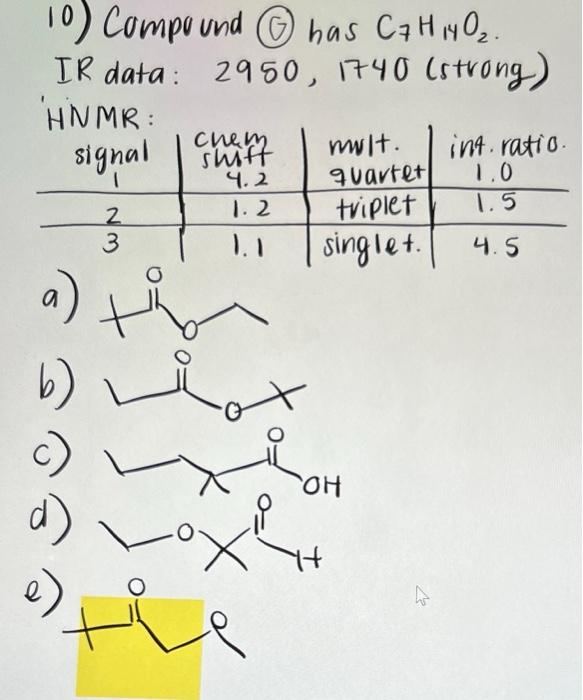 10) Compound G has C7H14O2.
IR data: 2950, 1740 (strong)
'HNMR:
signal chem shift mult. int. ratio.
1 4.2 quartet 1.0
2 1.2 triplet 1.5
3 1.1 singlet. 4.5
a) O O
b) O O
c) O OH
d) O O H
e) O O